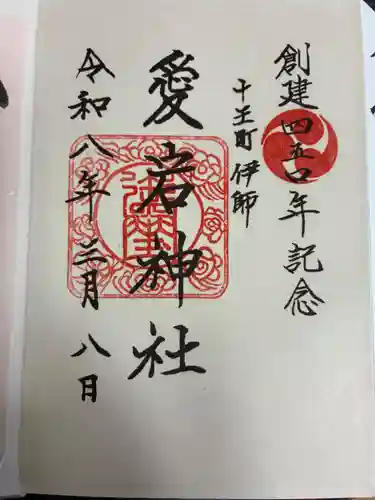 創建四五〇年記念
十王町 伊師
愛宕神社
令和八年三月八日